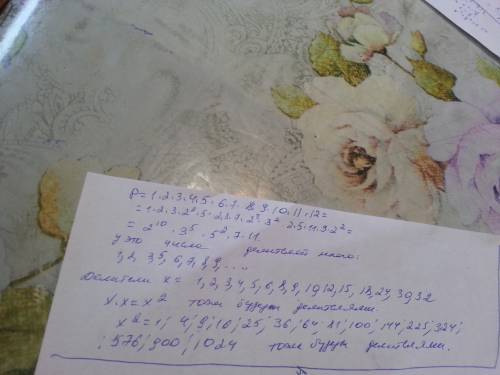 P=1·2·3·4·5·6·7·8·9·10·11·12=
=1·2·3·2²·5·2·3·7·2³·3²·2·5·11·3·2²=
=2¹⁰·3⁵·5²·7·11.
у это числа делителей много:
1, 2, 3, 5, 6, 7, 8, 9, ....
Делители x = 1, 2, 3, 4, 5, 6, 8, 9, 10, 12, 15, 18, 24, 30, 32
x·x = x² тоже будут делителями.
x² = 1; 4; 9; 16; 25; 36; 64; 81; 100; 144; 225; 324;
; 576; 900; 1024 тоже будут делителями.